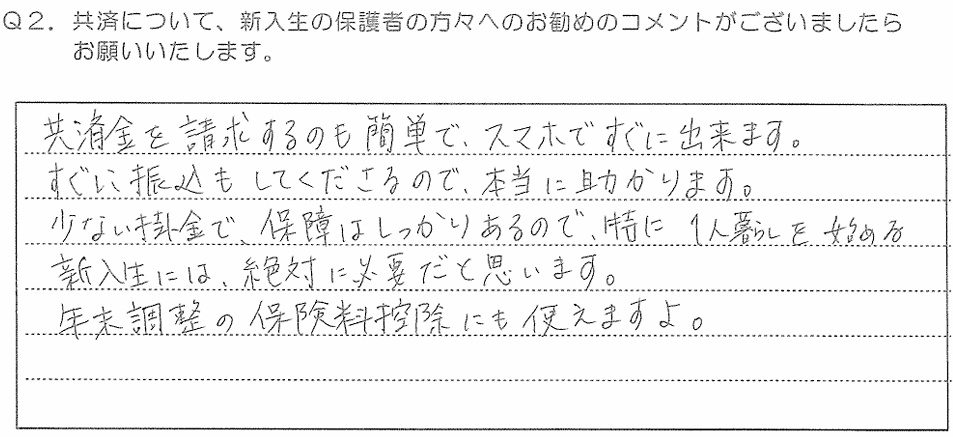 Q2．共済について、新入生の保護者の方々へのお勧めのコメントがございましたら
お願いいたします。
共済金を請求するのも簡単で、スマホですぐに出来ます。
すぐに振込もしてくださるので、本当に助かります。
少ない掛金で、保障はしっかりあるので、特に1人暮らしを始める
新入生には、絶対に必要だと思います。
年末調整の保険料控除にも使えますよ。